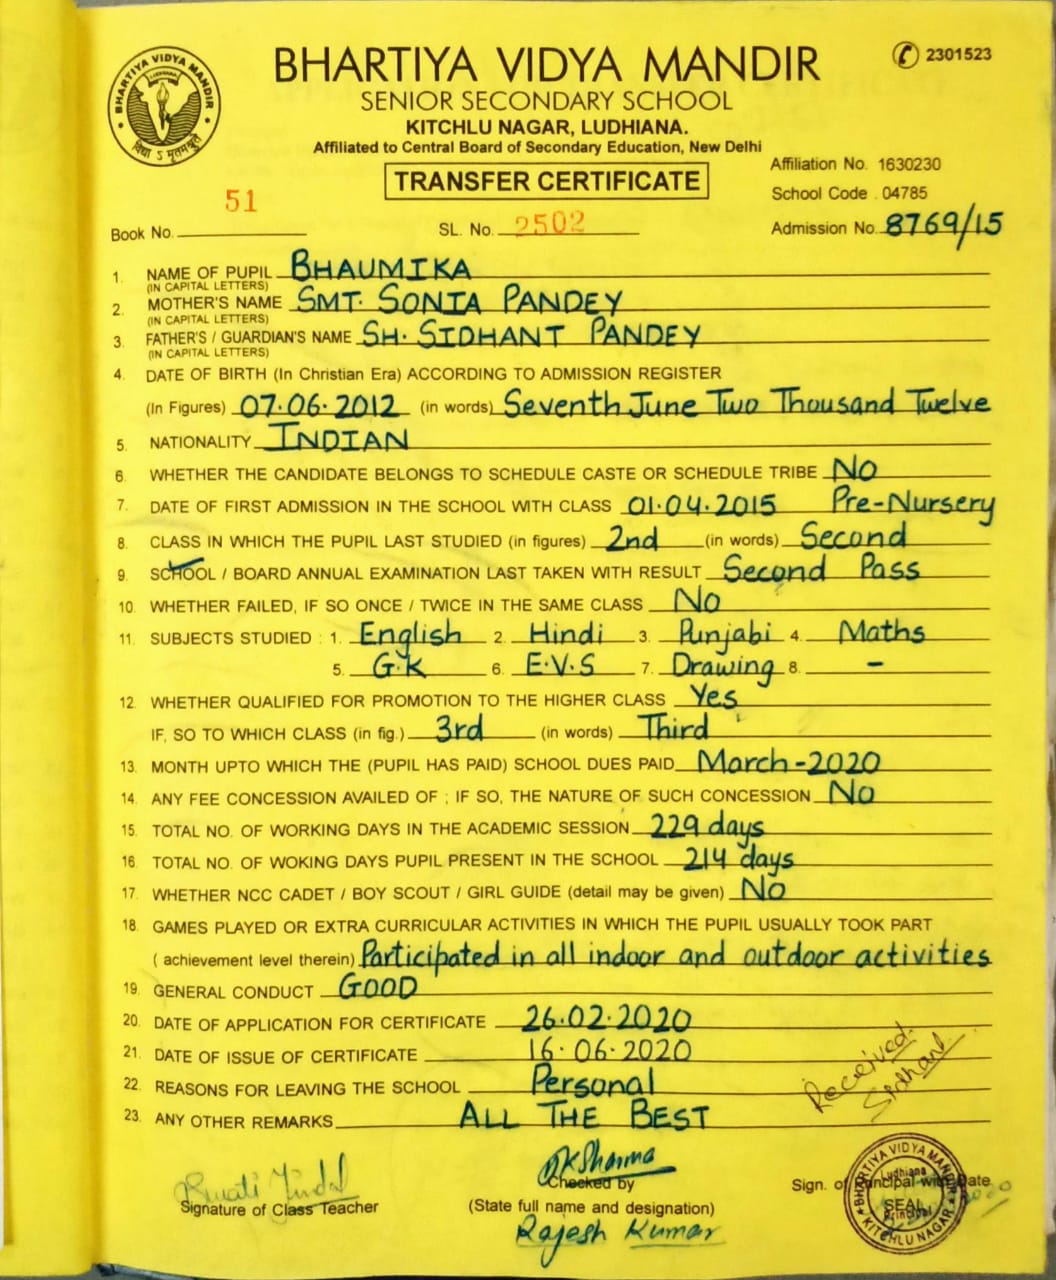 BHARTIYA VIDYA MANDIR
LUDHIANA
विद्या ऽ मृतमश्नुते
2301523
BHARTIYA VIDYA MANDIR
SENIOR SECONDARY SCHOOL
KITCHLU NAGAR, LUDHIANA.
Affiliated to Central Board of Secondary Education, New Delhi
Affiliation No. 1630230
TRANSFER CERTIFICATE
School Code . 04785
Book No. 51 SL. No. 2502 Admission No. 8769/15
1. NAME OF PUPIL BHAUMIKA
(IN CAPITAL LETTERS)
2. MOTHER'S NAME SMT. SONIA PANDEY
(IN CAPITAL LETTERS)
3. FATHER'S / GUARDIAN'S NAME SH. SIDHANT PANDEY
(IN CAPITAL LETTERS)
4. DATE OF BIRTH (In Christian Era) ACCORDING TO ADMISSION REGISTER
(In Figures) 07.06.2012 (in words) Seventh June Two Thousand Twelve
5. NATIONALITY INDIAN
6. WHETHER THE CANDIDATE BELONGS TO SCHEDULE CASTE OR SCHEDULE TRIBE NO
7. DATE OF FIRST ADMISSION IN THE SCHOOL WITH CLASS 01.04.2015 Pre-Nursery
8. CLASS IN WHICH THE PUPIL LAST STUDIED (in figures) 2nd (in words) Second
9. SCHOOL / BOARD ANNUAL EXAMINATION LAST TAKEN WITH RESULT Second Pass
10. WHETHER FAILED, IF SO ONCE / TWICE IN THE SAME CLASS No
11. SUBJECTS STUDIED : 1. English 2. Hindi 3. Punjabi 4. Maths
5. G.K 6. E.V.S 7. Drawing 8. -
12. WHETHER QUALIFIED FOR PROMOTION TO THE HIGHER CLASS Yes
IF, SO TO WHICH CLASS (in fig.) 3rd (in words) Third
13. MONTH UPTO WHICH THE (PUPIL HAS PAID) SCHOOL DUES PAID March-2020
14. ANY FEE CONCESSION AVAILED OF ; IF SO, THE NATURE OF SUCH CONCESSION No
15. TOTAL NO. OF WORKING DAYS IN THE ACADEMIC SESSION 229 days
16. TOTAL NO. OF WOKING DAYS PUPIL PRESENT IN THE SCHOOL 214 days
17. WHETHER NCC CADET / BOY SCOUT / GIRL GUIDE (detail may be given) NO
18. GAMES PLAYED OR EXTRA CURRICULAR ACTIVITIES IN WHICH THE PUPIL USUALLY TOOK PART
( achievement level therein) Participated in all indoor and outdoor activities
19. GENERAL CONDUCT GOOD
20. DATE OF APPLICATION FOR CERTIFICATE 26.02.2020
21. DATE OF ISSUE OF CERTIFICATE 16.06.2020
22. REASONS FOR LEAVING THE SCHOOL Personal
23. ANY OTHER REMARKS ALL THE BEST
Received.
Sidhant
Jindal
RKSharma
Signature of Class Teacher
Checked by
(State full name and designation)
Rajesh Kumar
Sign. of Principal with Date
SEAL
BHARTIYA VIDYA MANDIR
Ludhiana
Principal
KITCHLU NAGAR